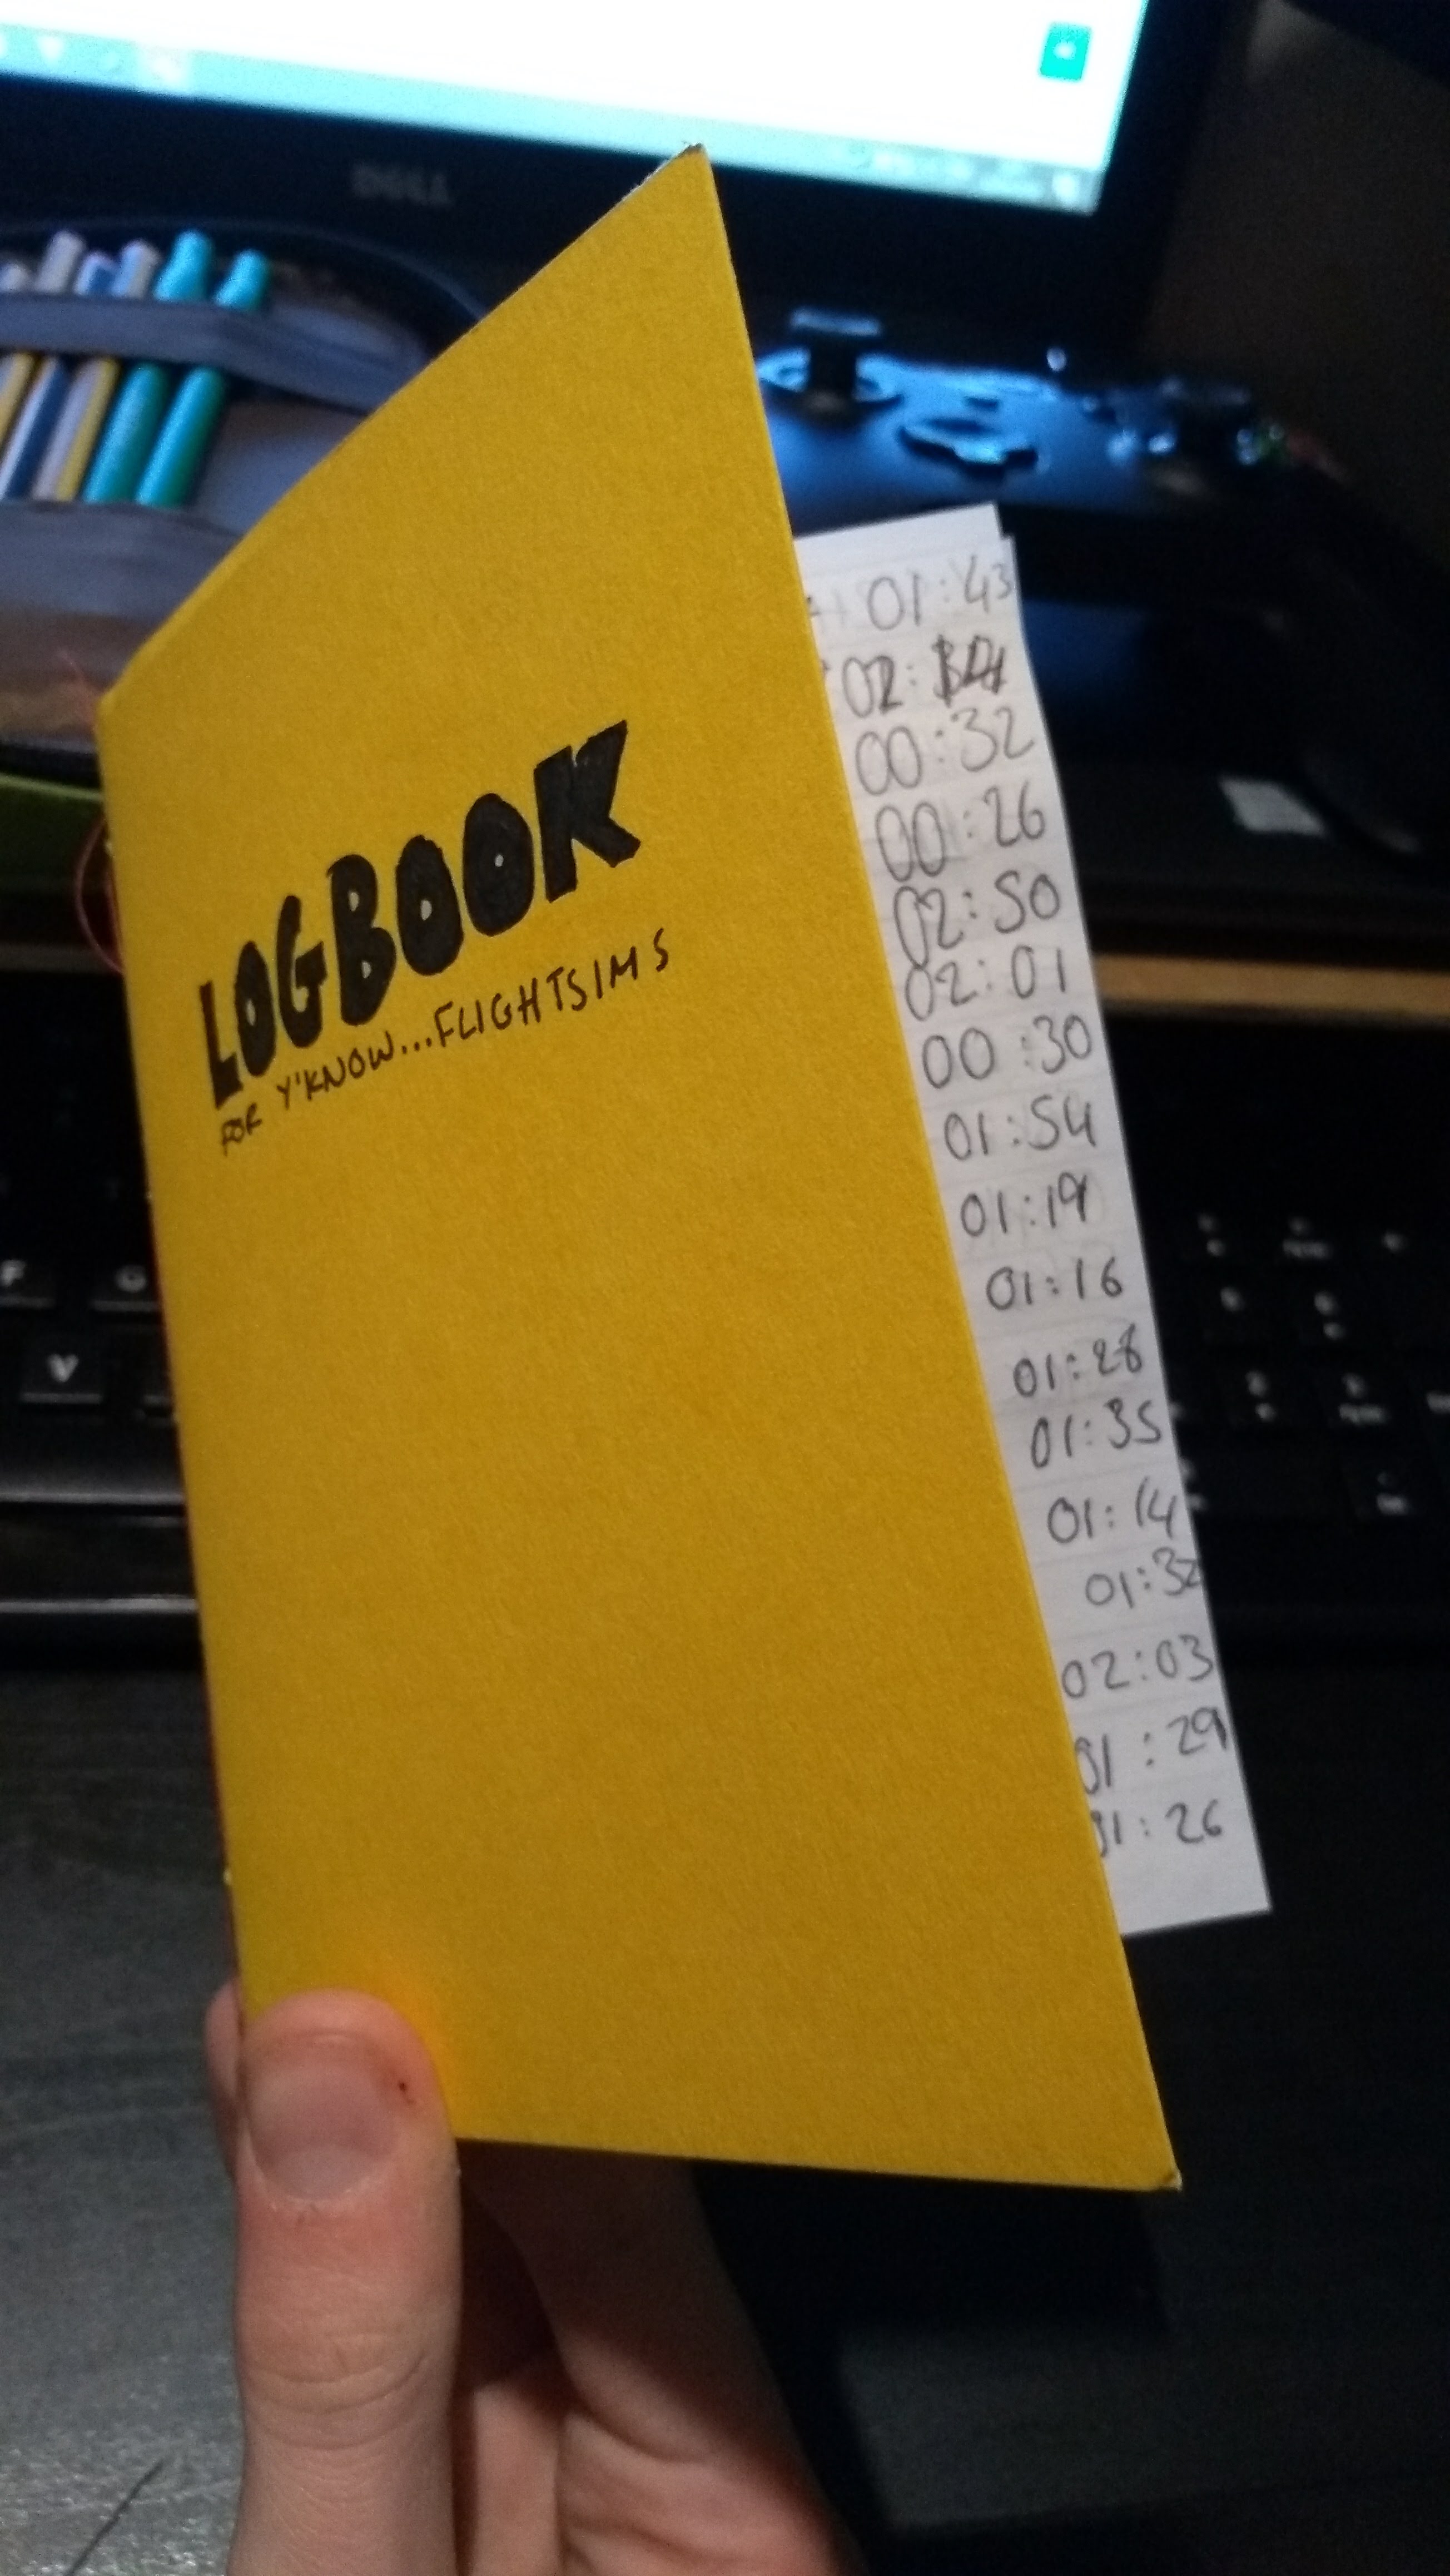 DELL
LOGBOOK
FOR Y'KNOW...FLIGHTSIMS
01:43
02:
00:32
00:26
02:50
02:01
00:30
01:54
01:19
01:16
01:28
01:35
01:14
01:32
02:03
01:29
01:26
F G
V